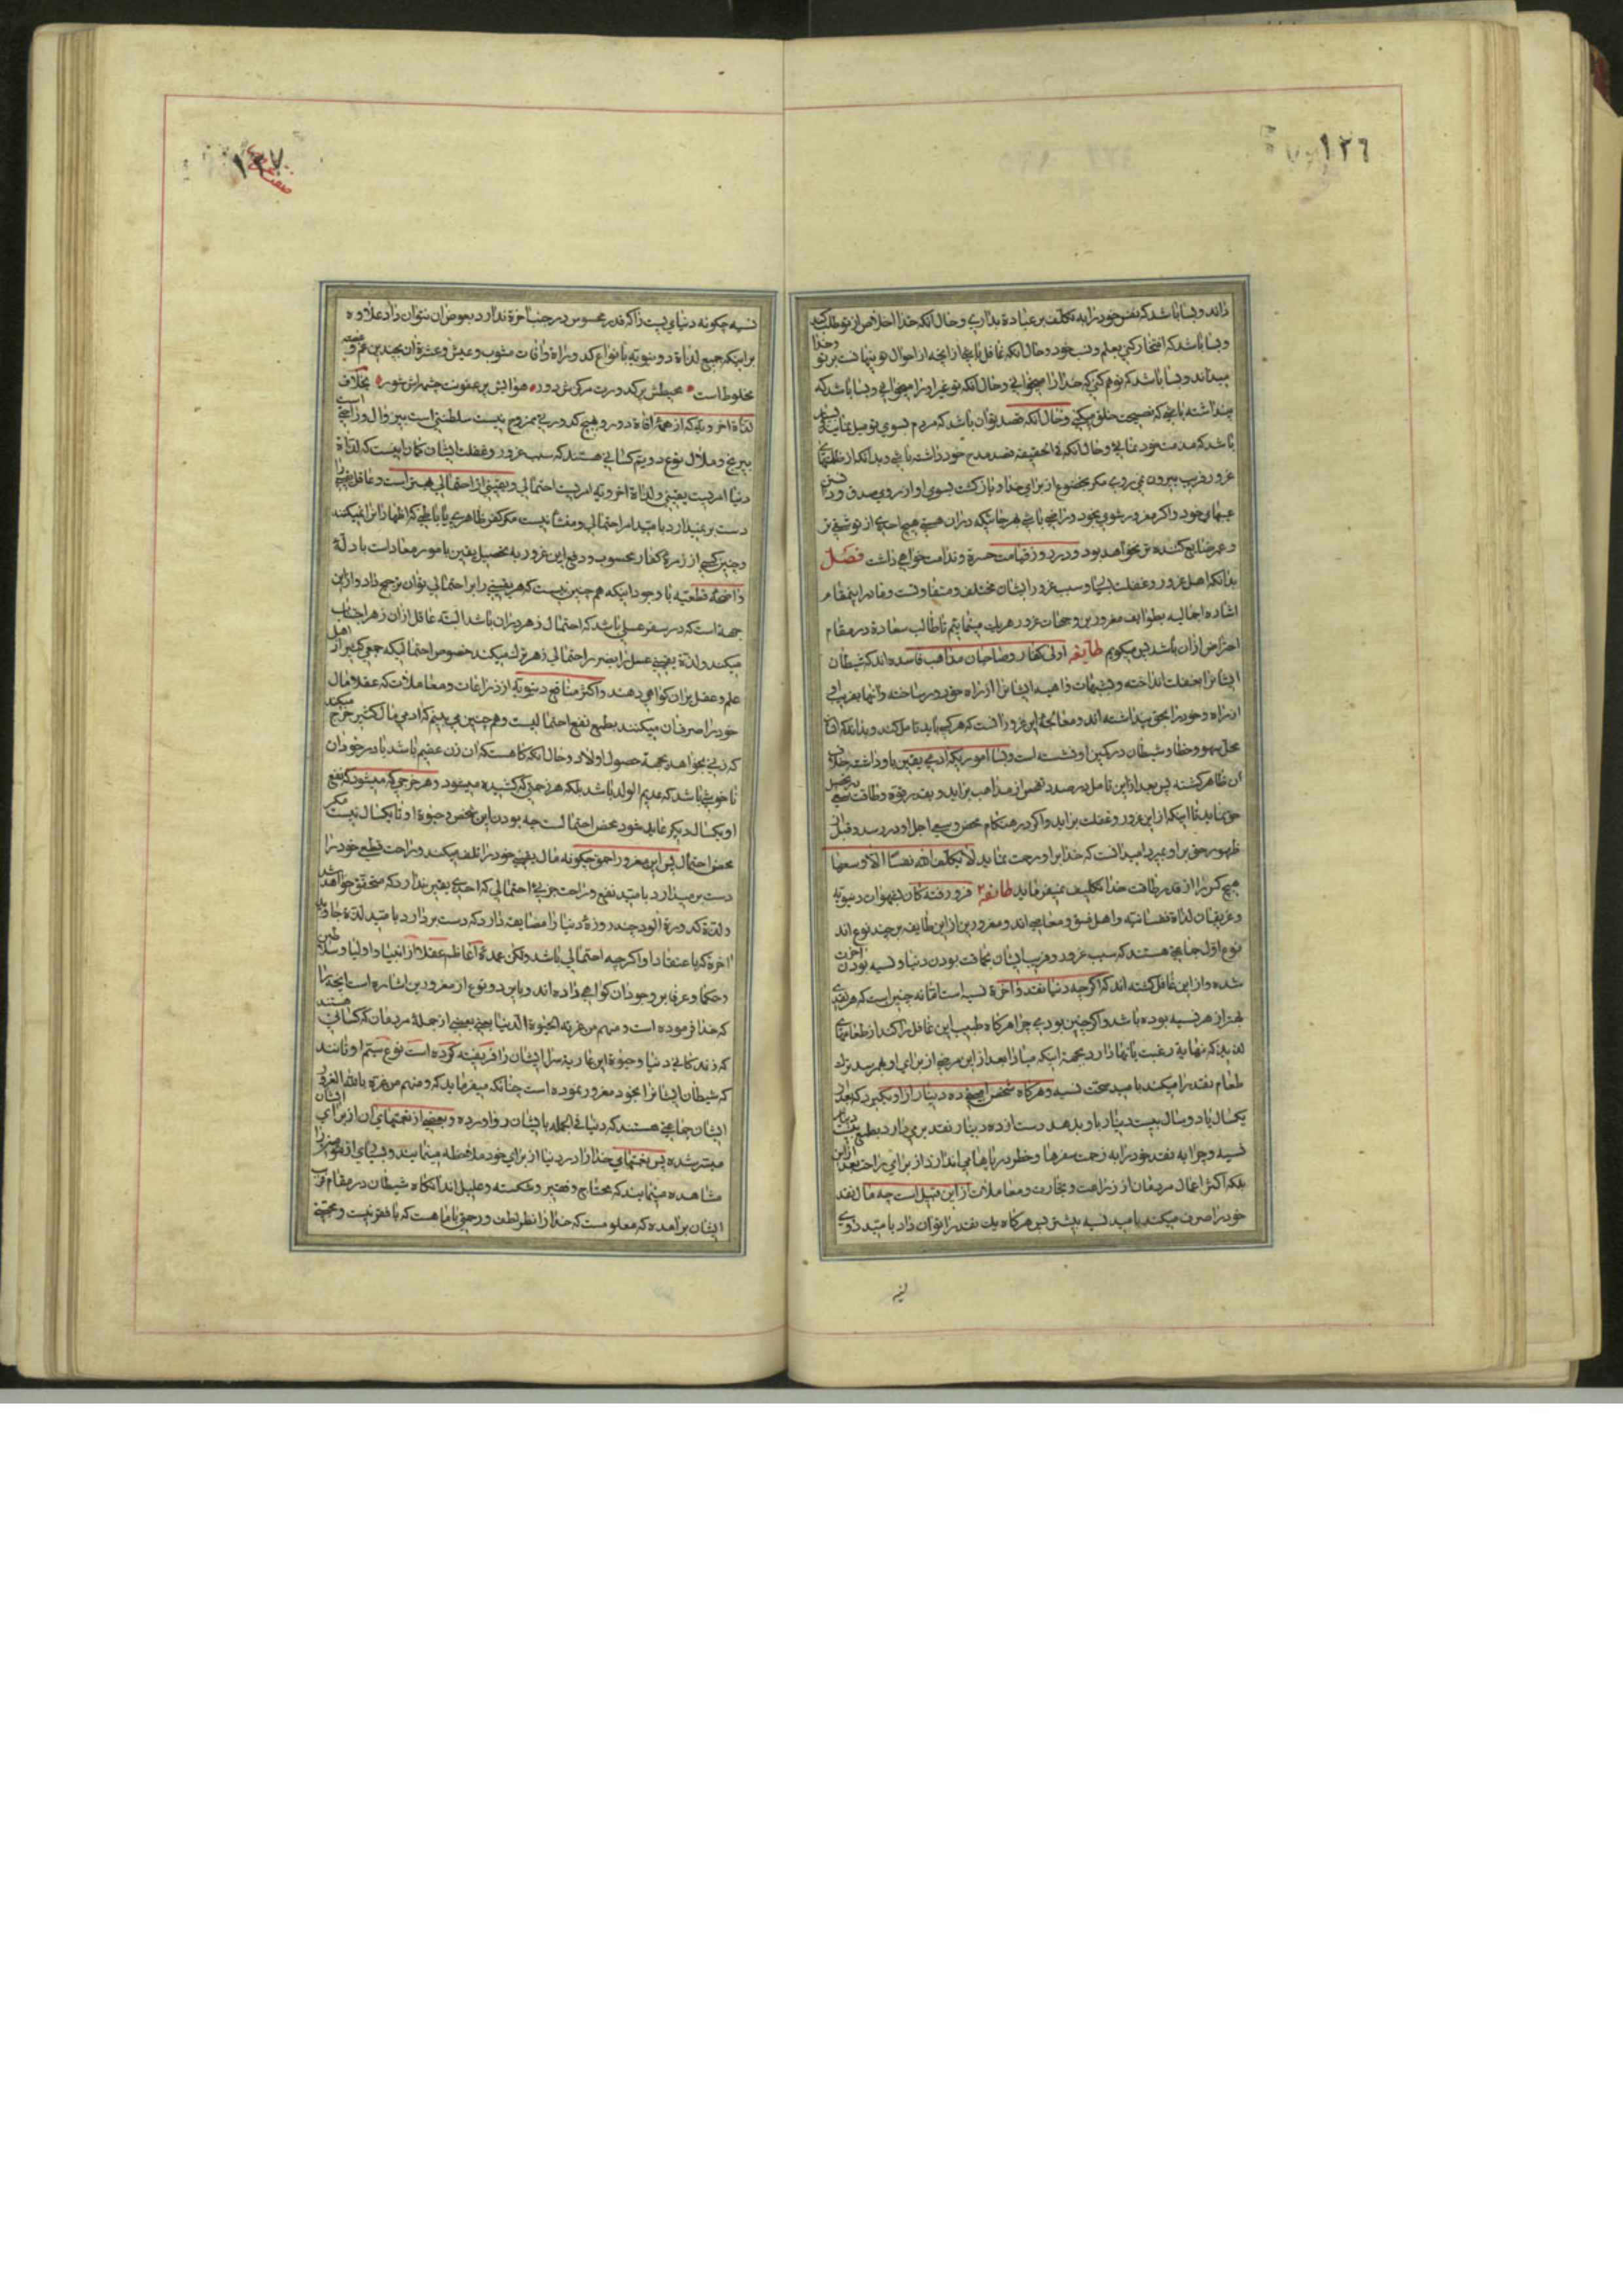 ١٣٦
داند و بسا باشد که نفس خود را به تکلف بر عبادة بداری و حال آنکه خدا اخلاص از تو طلب کند
و بسا باشد که افتخار کنی بعلم و نسب خود و حال آنکه غافل باشی از آنچه از احوال تو پنهانست بر تو و خدا
میداند و بسا باشد که توهم کنی که خدا را میخوانی و حال آنکه تو غیر او را میخوانی و بسا باشد که
پنداشته باشی که نصیحت خلق میکنی و حال آنکه قصد تو آن باشد که مردم بسوی تو میل نمایند و بسا
باشد که مذمت خود نمائی و حال آنکه فی الحقیقه قصد مدح خود داشته باشی و بدانکه از ظلمتهای
غرور و فریب بیرون نمی روی مگر بخضوع از برای خدا و بازگشت بسوی او از روی صدق و دانستن
عیبهای خود و اگر مغرور شوی بخود و راضی باشی بهر حالتیکه در آن هستی هیچ احدی از تو شقی تر
و عمر ضایع کننده تر نخواهد بود و در روز قیامت حسرة و ندامت خواهی داشت فصل
بدانکه اهل غرور و غفلت بسیار و سبب غرور ایشان مختلف و متفاوتست و ما در اینمقام
اشاره اجمالیه بطوایف مغرورین و جهات غرور هر یک مینمائیم تا طالب سعادة در مقام
احتراز از آن باشد پس میگویم طایفه اولی کفار و صاحبان مذاهب فاسده اند که شیطان
ایشانرا بغفلت انداخته و بشبهات واهیه ایشانرا از راه حق دور ساخته و آنها بفریب او
از راه و خود را بحق پنداشته اند و معالجه این غرور آنست که هر کس باید تامل کند و بداند که انسان
محل سهو و خطا و شیطان در کمین او نشسته است و بسا اموریکه آدمی یقین باو داشت خلاف
آن ظاهر گشته پس بعد از این تامل در صدد تفحص از مذاهب برآید و بقدر قوه و طاقت سعی در تحصیل
حق نماید تا اینکه از این غرور و غفلت برآید و اگر در هنگام تفحص و سعی اجل او در رسد و قبل از
ظهور حق بر او بمیرد امید آنست که خدا بر او رحمت نماید لا یکلف الله نفسا الا وسعها
هیچ کس را از قدر طاقت خدا تکلیف نمیفرماید طائفه ۲ فرورفته گان بشهوات دنیویه
و غریقان لذاة نفسانیه و اهل فسق و معاصی اند و مغرورین از این طایفه بر چند نوع اند
نوع اول جماعتی هستند که سبب غرور و فریب ایشان بحاقت بودن دنیا و نسیه بودن آخرت
شده و از این غافل گشته اند که اگر چه دنیا نقد و آخرة نسیه است اما نه چنین است که هر نقدی
بهتر از هر نسیه بوده باشد و اگر چنین بودی چرا هر گاه طبیب این غافل را کند از طعامهای
لذیذ که نهایة رغبت بآنها دارد بجهة اینکه مبادا بعد از این مرضی از برای او بهم رسد ترک
طعام نقد را میکند بامید صحت نسیه و هر گاه شخص ده دینار از او بگیرد که بعد از
یکسال یا دو سال بیست دینار باو بدهد دست از ده دینار نقد برمیدارد بطمع بیست دینار
نسیه و چرا به نقد خود را به زحمت سفرها و خطر دریاها می اندازد از برای راحت بعد از این
بلکه اکثر اعمال مردمان از زراعت و تجارت و معاملات از این قبیل است چه مال نقد
خود را صرف میکند بامید نسیه بیشتر پس هر گاه یک نقد را توان داد بامید دوی
١٣٧
نسیه چگونه دنیای پست را که قدر محسوس در جنب آخرة ندارد بعوض آن نتوان داد علاوه
بر اینکه جمیع لذاة دنیویه بانواع کدورة و آفات مشوب و عیش و عشرة آن بچندین غم و غصه
مخلوط است محیطش پر کدورت مرکزش دور هوایش پر عفونت چشمه اش شور بخلاف
لذاة اخرویه که از همه آفاة دور و بهیچ کدورتی ممزوج نیست سلطنتی است بی زوال و راحتی است
بی رنج و ملال نوع دویم کسانی هستند که سبب غرور و غفلت ایشان گمان اینست که لذاة
دنیا امریست یقینی و لذاة اخرویه امریست احتمالی و یقینی از احتمالی بهتر است و عاقل یقینی را
دست بر نمیدارد بامید امر احتمالی و منشأ نیست مگر کفر ظاهری یا باطنی که اظهار آنرا نمیکنند
و چنین کسی از زمره کفار محسوب و دفع این غرور به تحصیل یقین بامور معاد است بادله
واضحه قطعیه با وجود اینکه هم چنین نیست که هر یقینی را بر احتمالی توان ترجیح داد و از این
جهة است که در سفر عسلی باشد که احتمال زهر در آن باشد البته عاقل از آن زهر اجتناب
میکند و لذة یقینی عسل را بضرر احتمالی زهر ترک میکند خصوص احتمالیکه جمعی کثیر از اهل
علم و عقل بر آن گواهی دهند و اکثر منافع دنیویه از زراعات و معاملات که عقلا مال
خود را صرف آن میکنند بطمع نفع احتمالیست و هم چنین می بینیم که آدمی مال کثیر خرج میکند
که زنی بخواهد بجهة حصول اولاد و حال آنکه گاهست که آن زن عقیم باشد یا در خود آن
ناخوشی باشد که عدیم الولد باشد بلکه هر زحمتی که کشیده میشود و هر خرجی که میشود که نفع
او یکسال دیگر عاید خود محض احتمالست چه بودن این شخص و حیوة او تا یکسال نیست مگر
محض احتمال پس این مغرور احمق چگونه مال یقینی خود را تلف میکند و راحت قطعی خود را
دست برمیدارد بامید نفع و راحت جزئی احتمالی که احدی یقین ندارد که متحقق خواهد شد
و لذة کدورة آلود چند روزه دنیا را مضایقه دارد که دست بردارد بامید لذة جاوید
آخرة که باعتقاد او اگر چه احتمالی باشد ولکن عمده اعاظم عقلا از انبیا و اولیا و سلاطین
و حکما و عرفا بر وجود آن گواهی داده اند و باین دو نوع از مغرورین اشاره است آنچه را
که خدا فرموده است و منهم من غرته الحیوة الدنیا یعنی بعضی از جمله مردمان کسانی هستند
که زندگانی دنیا و حیوة این عاریه سرا ایشان را فریفته کرده است نوع سیم اوتانند
که شیطان ایشانرا بخود مغرور نموده است چنانکه میفرماید که و منهم من غره بالله الغرور
ایشان جماعتی هستند که دنیا فی الجمله بایشان رو آورده و بعضی از نعمتهای آن از برای ایشان
میسر شده پس نعمتهای خدا را در دنیا از برای خود ملاحظه مینمایند و بسیاری از مؤمنین را
مشاهده مینمایند که محتاج و فقیر و شکسته و علیل اند آنگاه شیطان در مقام فریب
ایشان برآمده که معلومست که خدا را نظر لطف در حق ما هست که با فقر نیست و محبتی